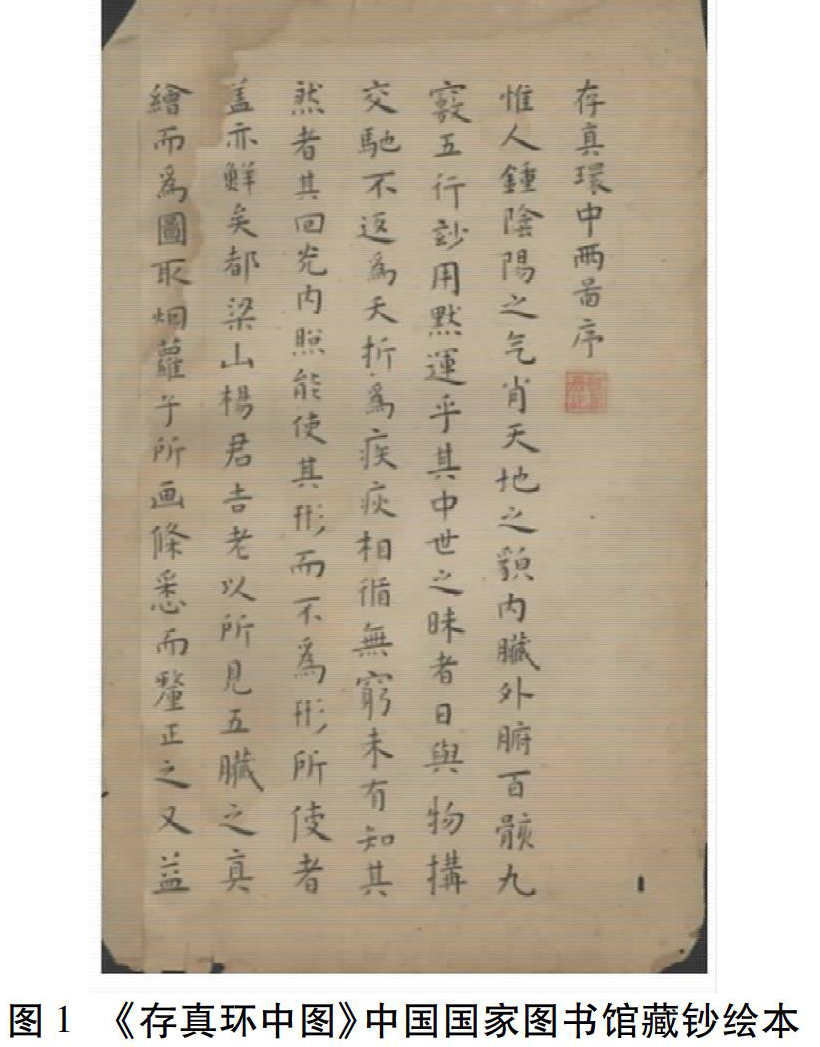 存真環中兩啚序
惟人鍾陰陽之气肖天地之䫉内臟外腑百骸九
竅五行玅用默運乎其中世之昧者日與物搆
交馳不返爲夭折爲疾疢相循無窮未有知其
然者其回光内照能使其形而不爲形所使者
盖亦鮮矣都梁山楊君吉老以所見五臟之真
繪而爲圖取烟蘿子所画條悉而釐正之又益
图 1 《存真环中图》中国国家图书馆藏钞绘本